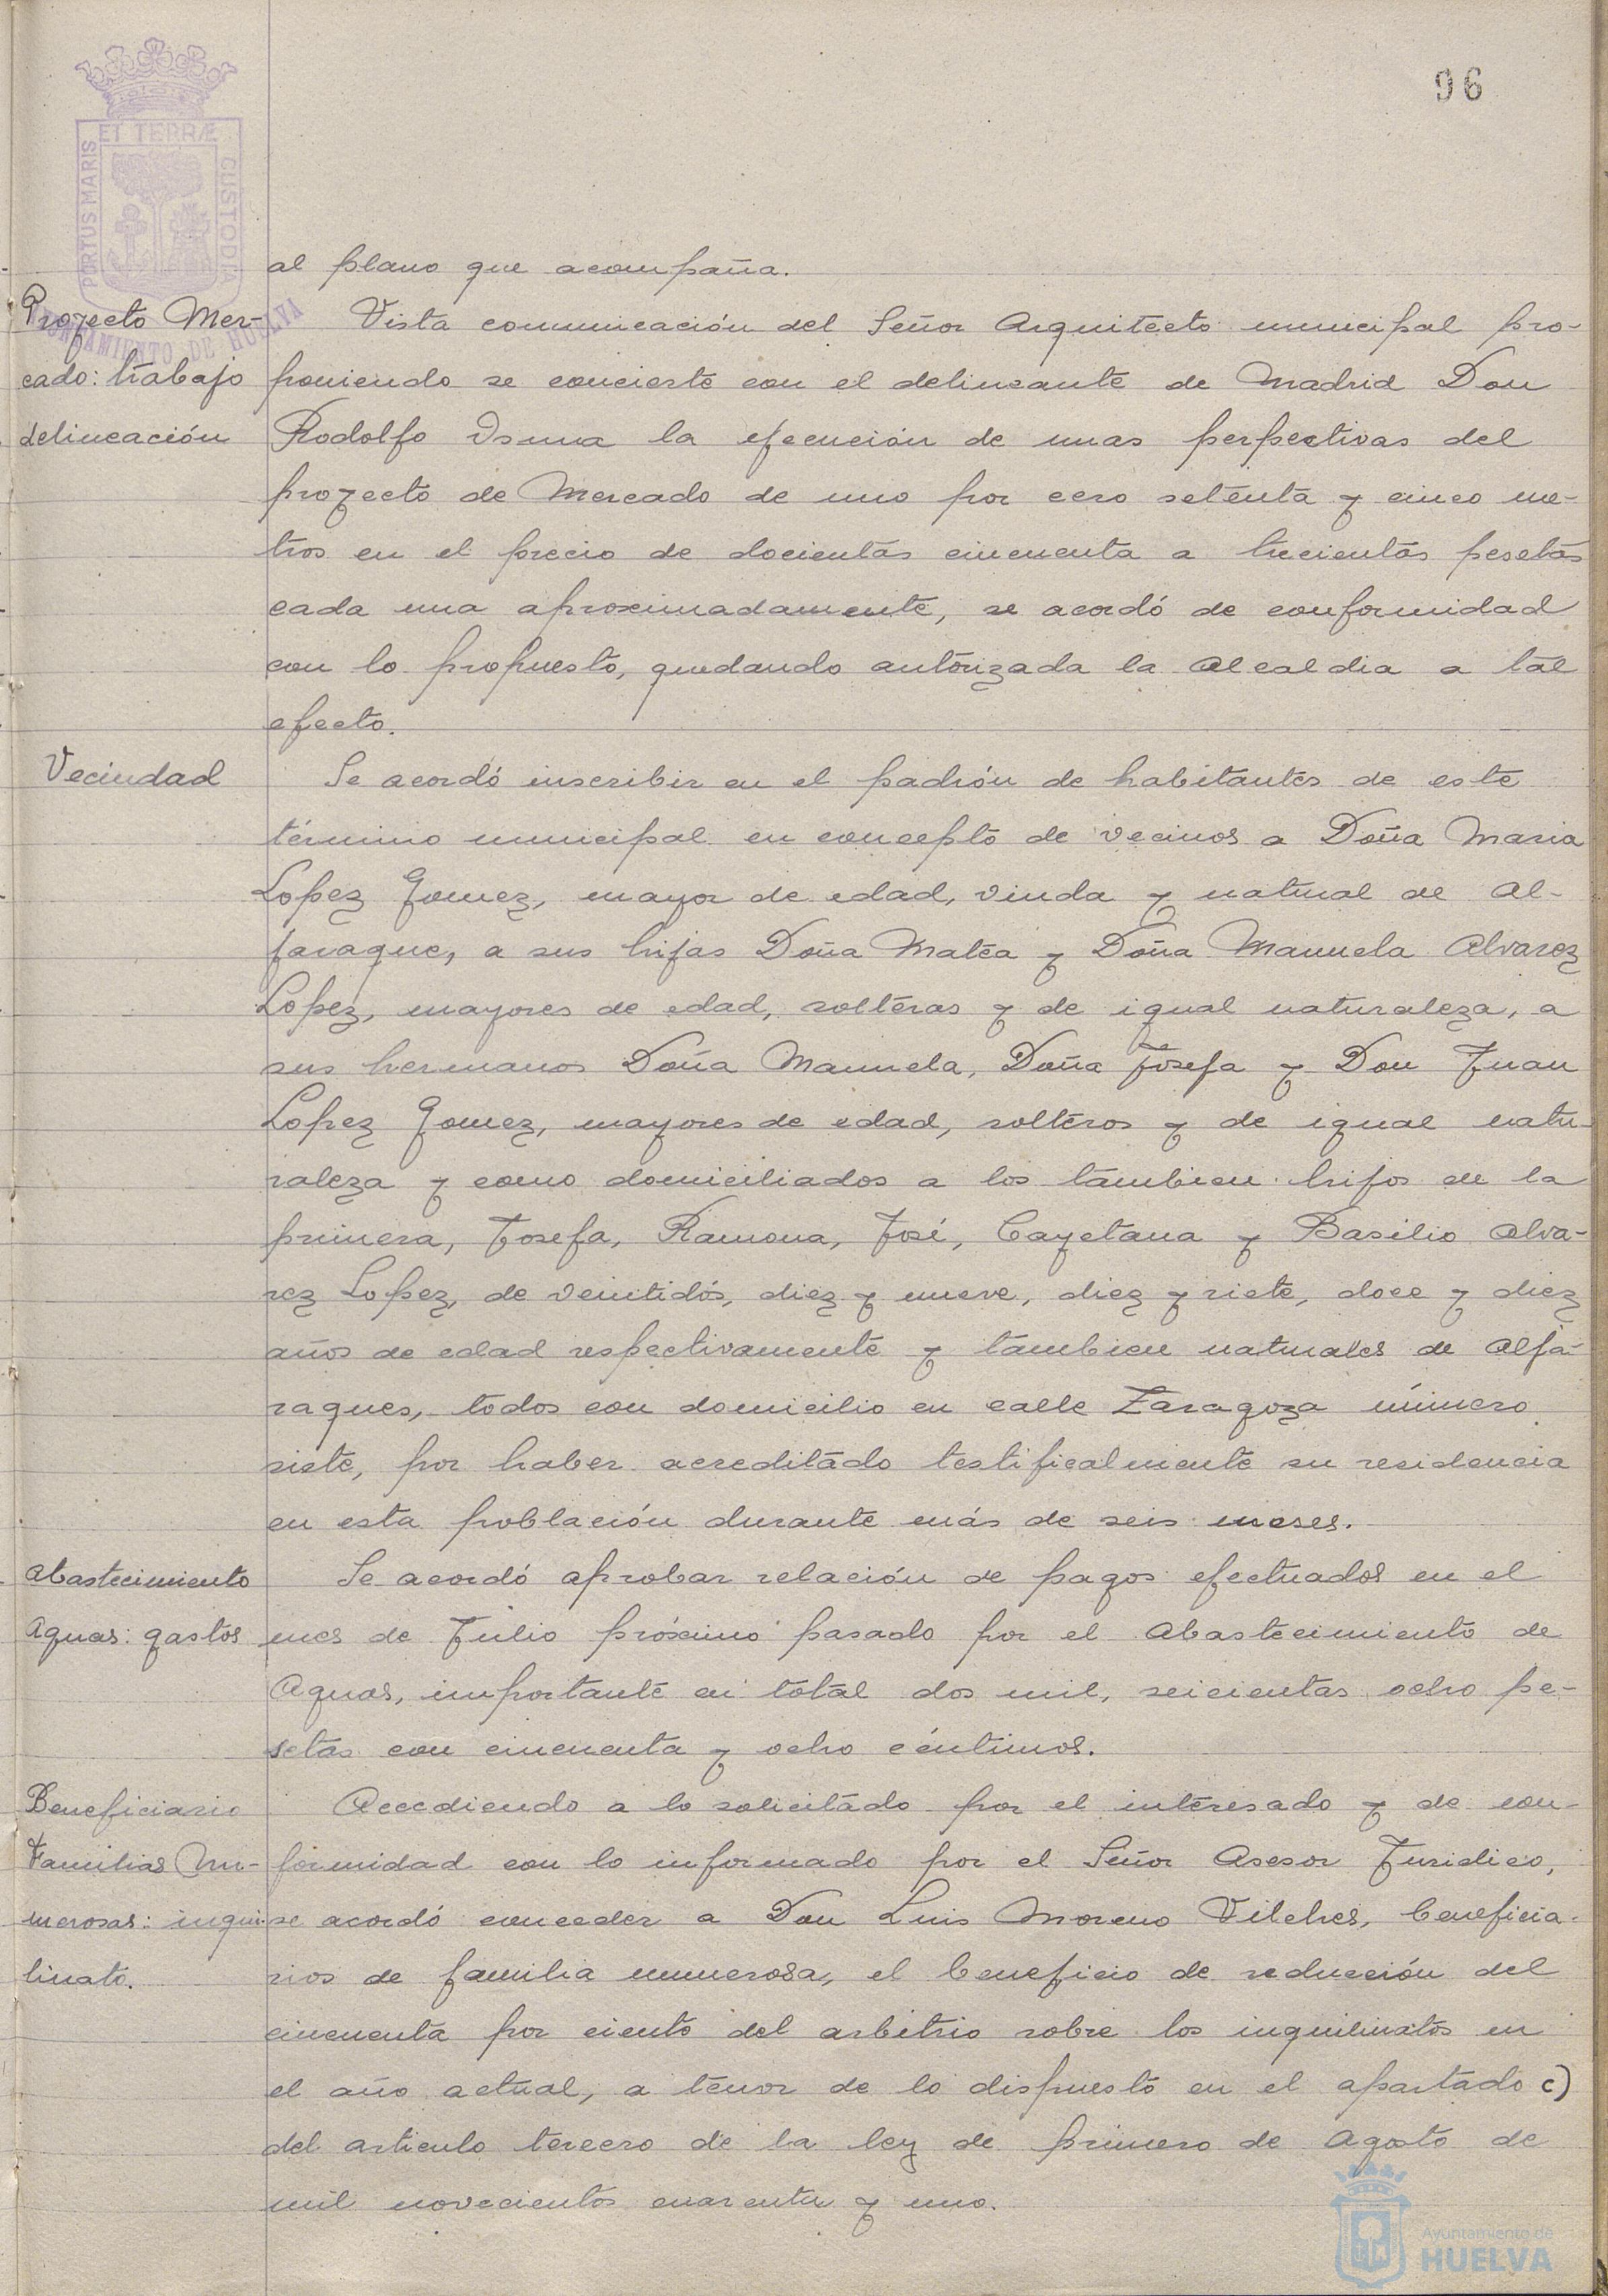 96
ET TERRÆ
PORTUS MARIS
CUSTODIA
AYUNTAMIENTO DE HUELVA
al plano que acompaña.
Proyecto Mer-
cado: trabajo
delineación
Vista comunicación del Señor Arquitecto municipal pro-
poniendo se concierte con el delineante de Madrid Don
Rodolfo la ejecución de unas perpectivas del
proyecto de Mercado de uno por cero setenta y cinco me-
tros en el precio de docientas cincuenta a trecientas pesetas
cada una aproximadamente, se acordó de conformidad
con lo propuesto, quedando autorizada la Alcaldia a tal
efecto.
Vecindad
Se acordó inscribir en el padrón de habitantes de este
término municipal en concepto de vecinos a Doña Maria
Lopez Gomez, mayor de edad, viuda y natural de Al-
jaraque, a sus hijas Doña Matea y Doña Manuela Alvarez
Lopez, mayores de edad, solteras y de igual naturaleza, a
sus hermanos Doña Manuela, Doña Josefa y Don Juan
Lopez Gomez, mayores de edad, solteros y de igual natu-
raleza y como domiciliados a los tambien hijos de la
primera, Josefa, Ramona, José, Cayetana y Basilio Alva-
rez Lopez, de veintidós, diez y nueve, diez y siete, doce y diez
años de edad respectivamente y tambien naturales de Alja-
raques, todos con domicilio en calle Zaragoza número
siete, por haber acreditado testificalmente su residencia
en esta población durante más de seis meses.
Abastecimiento
Aguas: gastos
Se acordó aprobar relación de pagos efectuados en el
mes de Julio próximo pasado por el Abastecimiento de
Aguas, importante en total dos mil, seicientas ocho pe-
setas con cincuenta y ocho céntimos.
Beneficiario
Familias Nu-
merosas: inqui-
linato.
Accediendo a lo solicitado por el interesado y de con-
formidad con lo informado por el Señor Asesor Juridico,
se acordó conceder a Don Luis Moreno Vilches, beneficia-
rios de familia numerosa, el beneficio de reducción del
cincuenta por ciento del arbitrio sobre los inquilinatos en
el año actual, a tenor de lo dispuesto en el apartado c)
del articulo tercero de la ley de primero de Agosto de
mil novecientos cuarenta y uno.
Ayuntamiento de
HUELVA